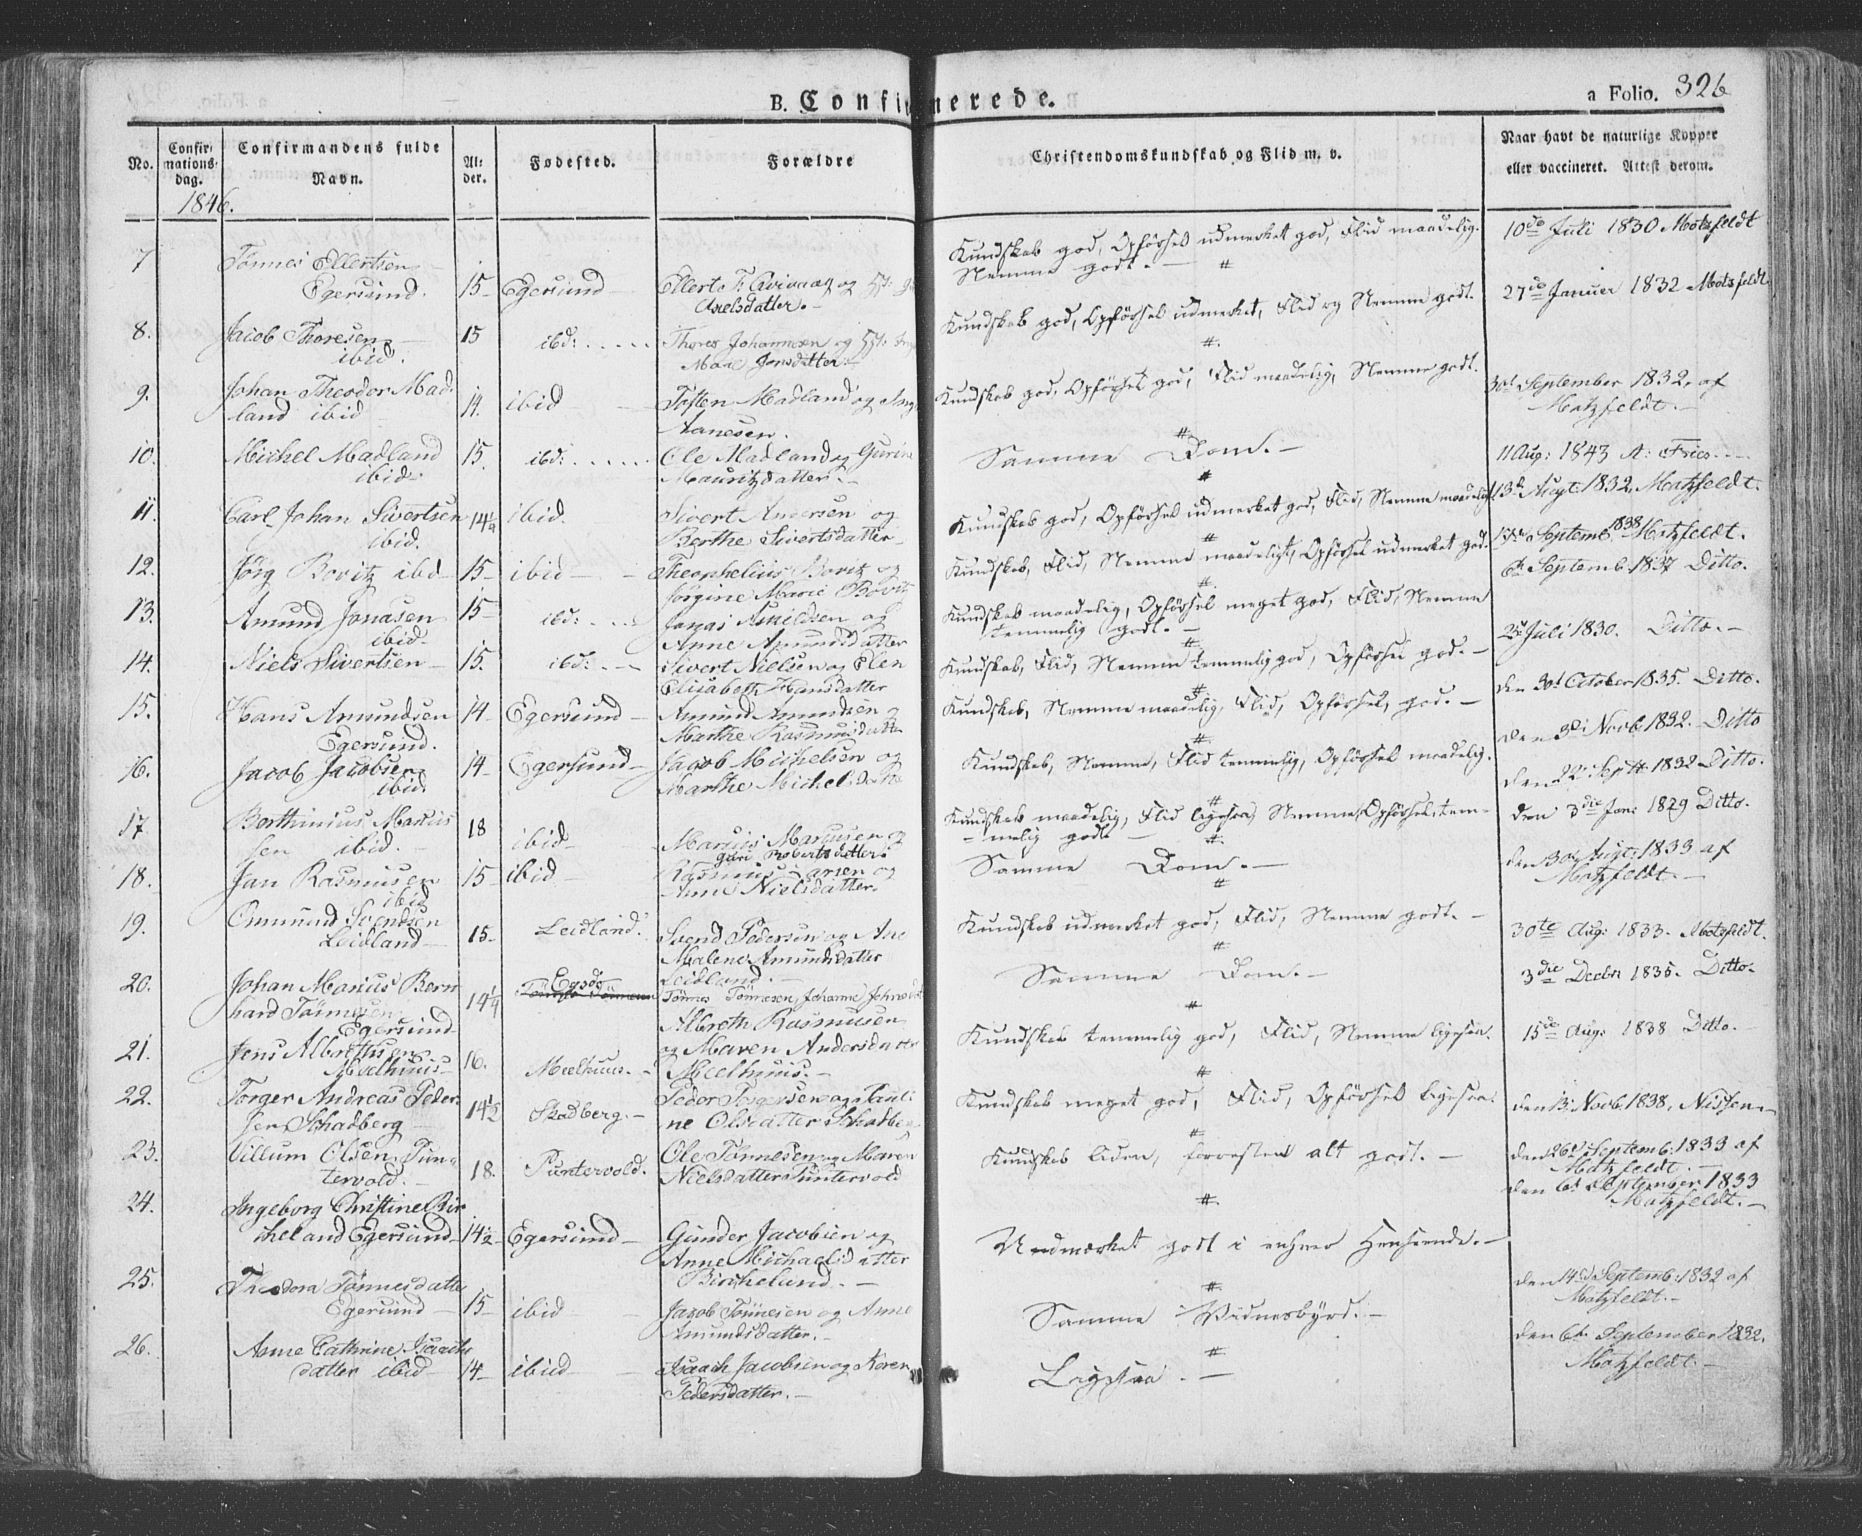 B. Confirmerede.
a Folio. 326
No.
Confir-
mations-
dag.
Confirmandens fulde
Navn.
Al-
der.
Fødested.
Forældre
Christendomskundskab og Flid m. v.
Naar havt de naturlige Kopper
eller vaccineret. Attest derom.
1846.
7 Tønnes Ellertsen
Egersund. 15 Egersund Ellert T. og
Axelsdatter.
Kundskab god, Opførsel udmerket god, Flid maadelig.
Nemme godt.
10de Juli 1830 Motzfeldt
8. Jacob Thoresen
ibid. 15 ibd: Thores Johannesen og
Jonsdatter
Kundskab god, Opførsel udmerket, Flid og Nemme godt.
27de Januer 1832 Motzfeldt
9. Johan Theodor Mad-
land ibid 14. ibid Tosten Madland og
Aanesen.
Kundskab god, Opførsel god, Flid maadelig, Nemme godt.
30d September 1832. af
Motzfeldt.
10. Michel Madland
ibid 15. ibd: Ole Madland og Gurine
Mauritzdatter.
Samme Dom.
11 Aug: 1843 A: Fries
11. Carl Johan Sivertsen
ibid. 14 1/4 ibid. Sivert Andersen og
Berthe Sivertsdatter
Kundskab god, Opførsel udmerket god, Flid, Nemme maadeligt
13d Augt 1832. Motzfeldt.
12. Jørg Bovitz ibd 15 ibid Theophelius Bovitz og
Jørgine Marie Bovitz
Kundskab, Flid, Nemme maadeligt, Opførsel udmerket god.
Septemb. 1838 Motzfeldt.
13. Amund Jonasen
ibid. 15 ibd: Jonas Asnildsen og
Anne Amundsdatter
Kundskab maadelig, Opførsel meget god, Flid, Nemme
temmelig godt.
6d Septemb. 1837 Ditto.
14. Niels Sivertsen 15. ibd: Sivert Nielsen og Elen
Elisabeth Hansdatter
Kundskab, Flid, Nemme temmelig god, Opførsel god.
Juli 1830. Ditto.
15. Hans Amundsen
Egersund. 14 Egersund Amund Amundsen og
Marthe Rasmusdatter
Kundskab, Nemme maadelig, Flid, Opførsel, god.
den 30d October 1835. Ditto.
16. Jacob Jacobsen
ibid 14 Egersund Jacob Michelsen og
Marthe Michelsdatter
Kundskab, Nemme, Flid temmelig, Opførsel maadelig.
den 3d Novb 1832. Ditto
den 22d Septb 1832 Ditto.
17. Berthinius Marcus
sen ibid. 18 ibid Marcus Marcusen og
Guri Robertsdatter.
Kundskab maadelig, Flid ligesaa, Nemme, Opførsel, tem-
melig godt
den 3die Jan: 1829 Ditto.
18. Jan Rasmusen
ibid 15 ibid Rasmus Larsen og
Anne Nielsdatter.
Samme Dom.
den 30d Augt: 1833 af
Motzfeldt.
19. Ommund Svendsen
Leidland 15 Leidland. Svend Pedersen og Ane
Malene Amundsdatter
Leidland.
Kundskab udmerket god, Flid, Nemme godt.
30te Aug: 1833. Motzfeldt.
20. Johan Marius Bern
hard Tönnesen
Egersund 14 1/4 Egsög Tönnes Tönnesen, Johanne
Samme Dom.
3die Decbr 1835. Ditto.
21. Jens Albrethsen
Mælhuus 16. Mælhuus. Albreth Rasmusen
og Maren Andersdatter
Mælhuus.
Kundskab temmelig god, Flid, Nemme ligesaa.
15de Aug: 1838 Ditto.
22. Torger Andreas Peder-
sen Schadberg 14 1/2 Skadberg. Peder Torgersen og Pauli-
ne Olsdatter Schadberg
Kundskab meget god, Flid, Opførsel ligesaa.
den 13. Novb. 1838, Nissen
23. Villum Olsen Pun-
tervold. 18. Puntervold. Ole Tønnesen og Maren
Nielsdatter Puntervold
Kundskab liden, forresten alt godt.
den 26d Septemb. 1833 af
Motzfeldt.
24. Ingeborg Christine Bir
cheland Egersund 14 1/2 Egersund Gunder Jacobsen og
Anne Michaelsdatter
Bircheland.
Uudmærket godt i enhver Henseende.
den 6d September 1833
Motzfeldt.
25. Theodora Tønnesdatter
Egersund 15 ibid Jacob Tönnesen og Anne
Amundsdatter.
Samme Vidnesbyrd.
den 14d Septemb: 1832 af
Motzfeldt.
26. Anne Cathrine Isaachs
datter ibid 14 ibid Isaach Jacobsen og Karen
Pedersdatter.
Ligesaa.
den 6d September 1832.
Motzfeldt.